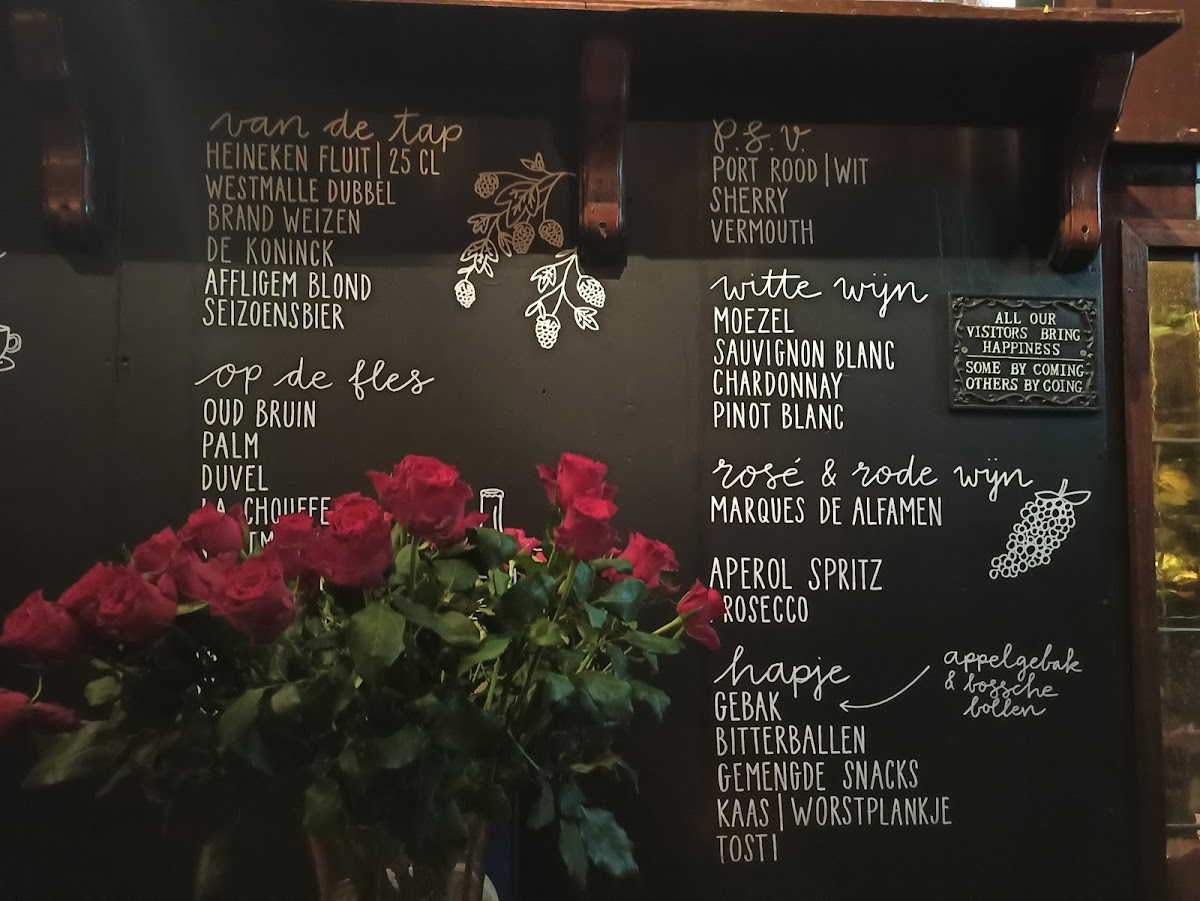 van de tap
HEINEKEN FLUIT | 25 CL
WESTMALLE DUBBEL
BRAND WEIZEN
DE KONINCK
AFFLIGEM BLOND
SEIZOENSBIER
op de fles
OUD BRUIN
PALM
DUVEL
LA CHOUFFE
p.s.v.
PORT ROOD | WIT
SHERRY
VERMOUTH
witte wijn
MOEZEL
SAUVIGNON BLANC
CHARDONNAY
PINOT BLANC
ALL OUR
VISITORS BRING
HAPPINESS
SOME BY COMING
OTHERS BY GOING
rosé & rode wijn
MARQUES DE ALFAMEN
APEROL SPRITZ
PROSECCO
hapje
GEBAK
appelgebak
& bossche
bollen
BITTERBALLEN
GEMENGDE SNACKS
KAAS | WORSTPLANKJE
TOSTI